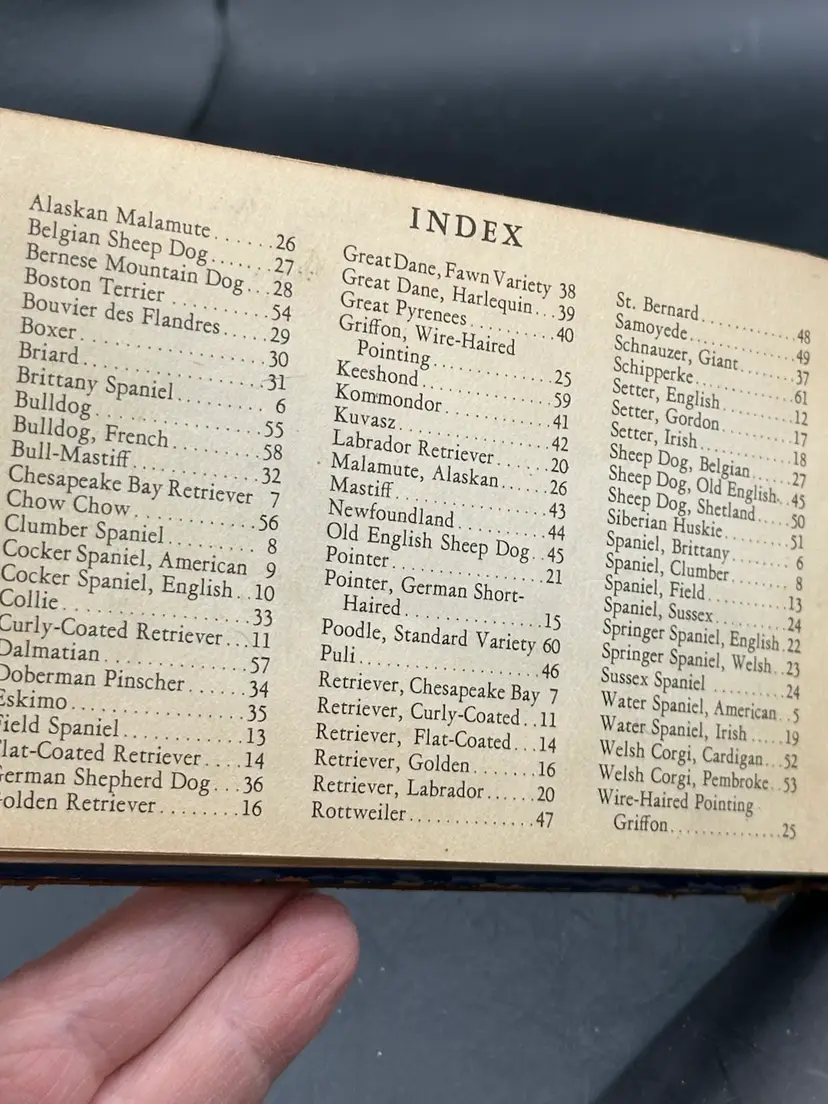 INDEX
Alaskan Malamute......26
Belgian Sheep Dog......27
Bernese Mountain Dog...28
Boston Terrier..........54
Bouvier des Flandres.....29
Boxer..................30
Briard.................31
Brittany Spaniel........ 6
Bulldog................55
Bulldog, French.........58
Bull-Mastiff............32
Chesapeake Bay Retriever 7
Chow Chow............56
Clumber Spaniel........ 8
Cocker Spaniel, American 9
Cocker Spaniel, English..10
Collie.................33
Curly-Coated Retriever...11
Dalmatian..............57
Doberman Pinscher......34
Eskimo................35
ield Spaniel...........13
lat-Coated Retriever....14
erman Shepherd Dog...36
olden Retriever.........16
Great Dane, Fawn Variety 38
Great Dane, Harlequin...39
Great Pyrenees..........40
Griffon, Wire-Haired
Pointing..............25
Keeshond..............59
Kommondor............41
Kuvasz................42
Labrador Retriever......20
Malamute, Alaskan......26
Mastiff................43
Newfoundland..........44
Old English Sheep Dog..45
Pointer................21
Pointer, German Short-
Haired...............15
Poodle, Standard Variety 60
Puli...................46
Retriever, Chesapeake Bay 7
Retriever, Curly-Coated..11
Retriever, Flat-Coated...14
Retriever, Golden.......16
Retriever, Labrador......20
Rottweiler.............47
St. Bernard............48
Samoyede..............49
Schnauzer, Giant........37
Schipperke.............61
Setter, English..........12
Setter, Gordon..........17
Setter, Irish............18
Sheep Dog, Belgian......27
Sheep Dog, Old English..45
Sheep Dog, Shetland.....50
Siberian Huskie.........51
Spaniel, Brittany........ 6
Spaniel, Clumber........ 8
Spaniel, Field..........13
Spaniel, Sussex.........24
Springer Spaniel, English.22
Springer Spaniel, Welsh..23
Sussex Spaniel .........24
Water Spaniel, American..5
Water Spaniel, Irish.....19
Welsh Corgi, Cardigan...52
Welsh Corgi, Pembroke..53
Wire-Haired Pointing
Griffon..............25